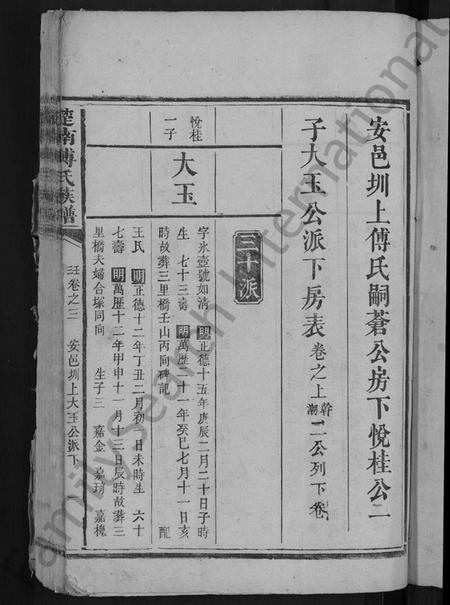 安邑圳上傅氏嗣蒼公房下悅桂公二
子大玉公派下房表 卷之上 幹潮二公列下卷
三十派
悅桂
一子
大玉
字氷壺號如清 明正德十五年庚辰二月二十日子時
生 七十三壽 明萬歷二十一年癸巳七月十一日亥
時故葬三里橋壬山丙向碑記 配
王氏 明正德十二年丁丑二月初一日未時生 六十
七壽 明萬歷十二年甲申十一月十三日辰時故葬三
里橋夫婦合塚同向 生子三 嘉金 嘉琦 嘉槐
楚南傅氏族譜
卷之三 安邑圳上大玉公派下
FamilySearch International